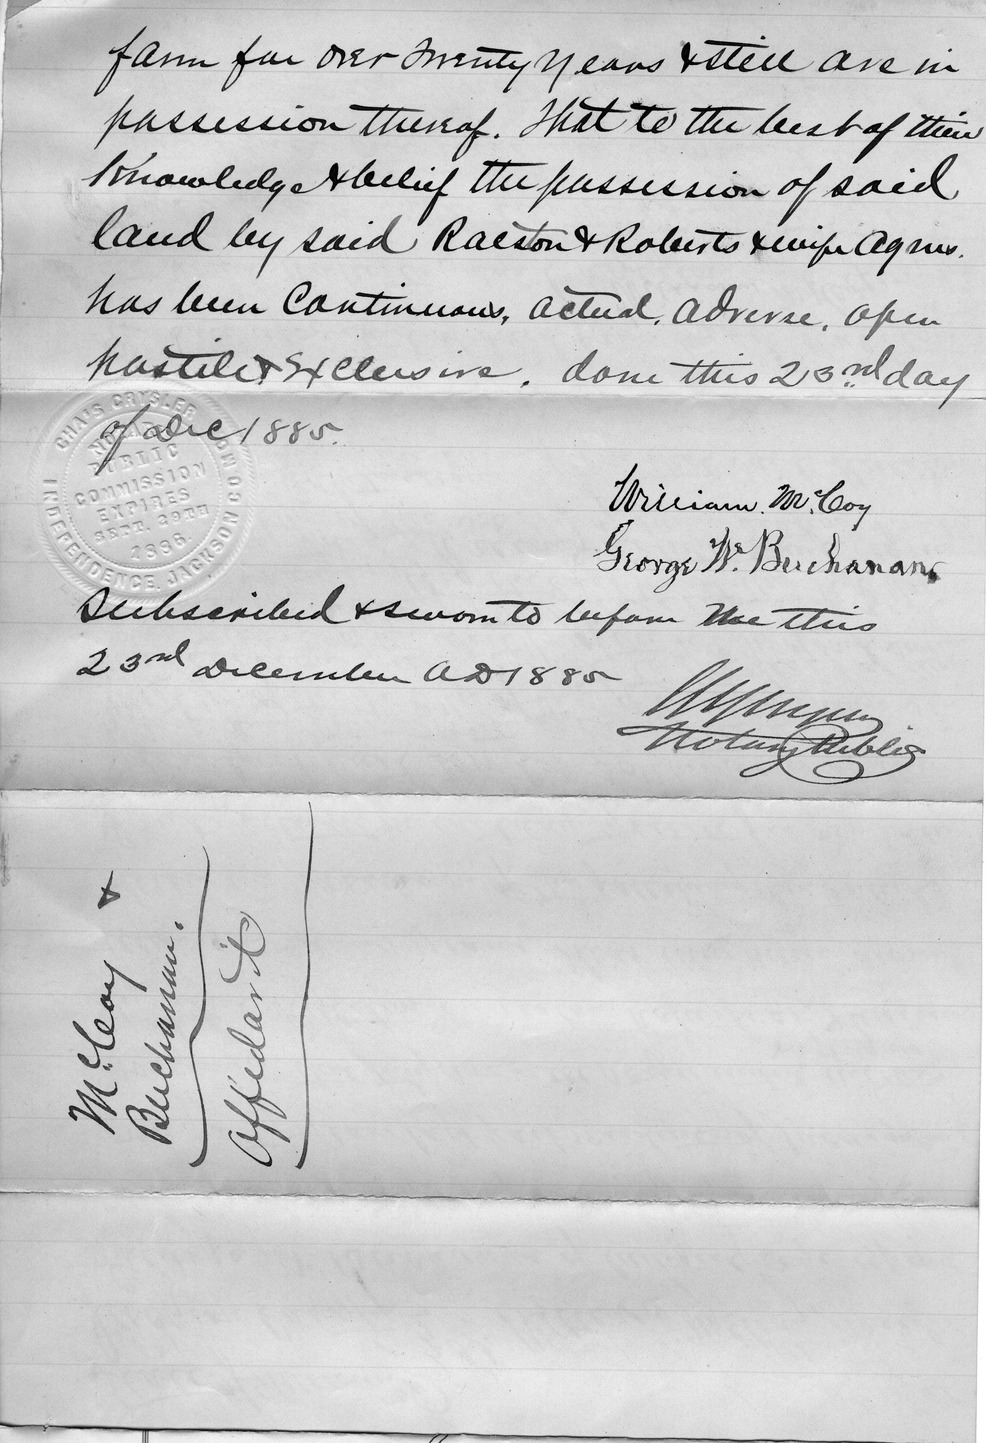 farm for over twenty years & still are in
possession thereof. That to the best of their
Knowledge & belief the possession of said
land by said Ralston & Roberts & wife Agnes.
has been Continuous, actual, adverse, open
hostile & Exclusive. done this 23rd day
of Dec 1885.
CHA'S CRYSLER
NOTARY
PUBLIC
COMMISSION
EXPIRES
SEPT. 29TH
1886.
INDEPENDENCE, JACKSON CO MO
William McCoy
George W. Buchanan
Subscribed & sworn to before me this
23rd December AD 1885
Notary Public
McCoy &
Buchanan.
Affidavit